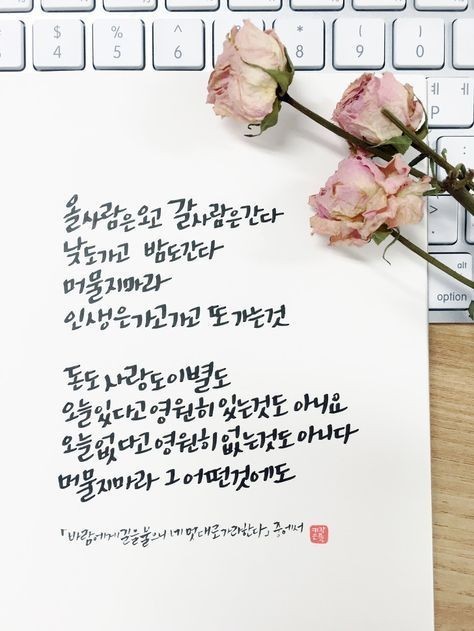 %
5
^
6
&
7
*
8
(
9
)
0
ㅔ ㅖ
P
alt
option
올사람은오고 갈사람은간다
낮도가고 밤도간다
머물지마라
인생은가고가고 또 가는것
돈도 사랑도이별도
오늘있다고영원히 있는것도 아니요
오늘없다고영원히 없는것도아니다
머물지마라 그 어떤것에도
「바람에게길을물으니 네 멋대로가라한다」 중에서